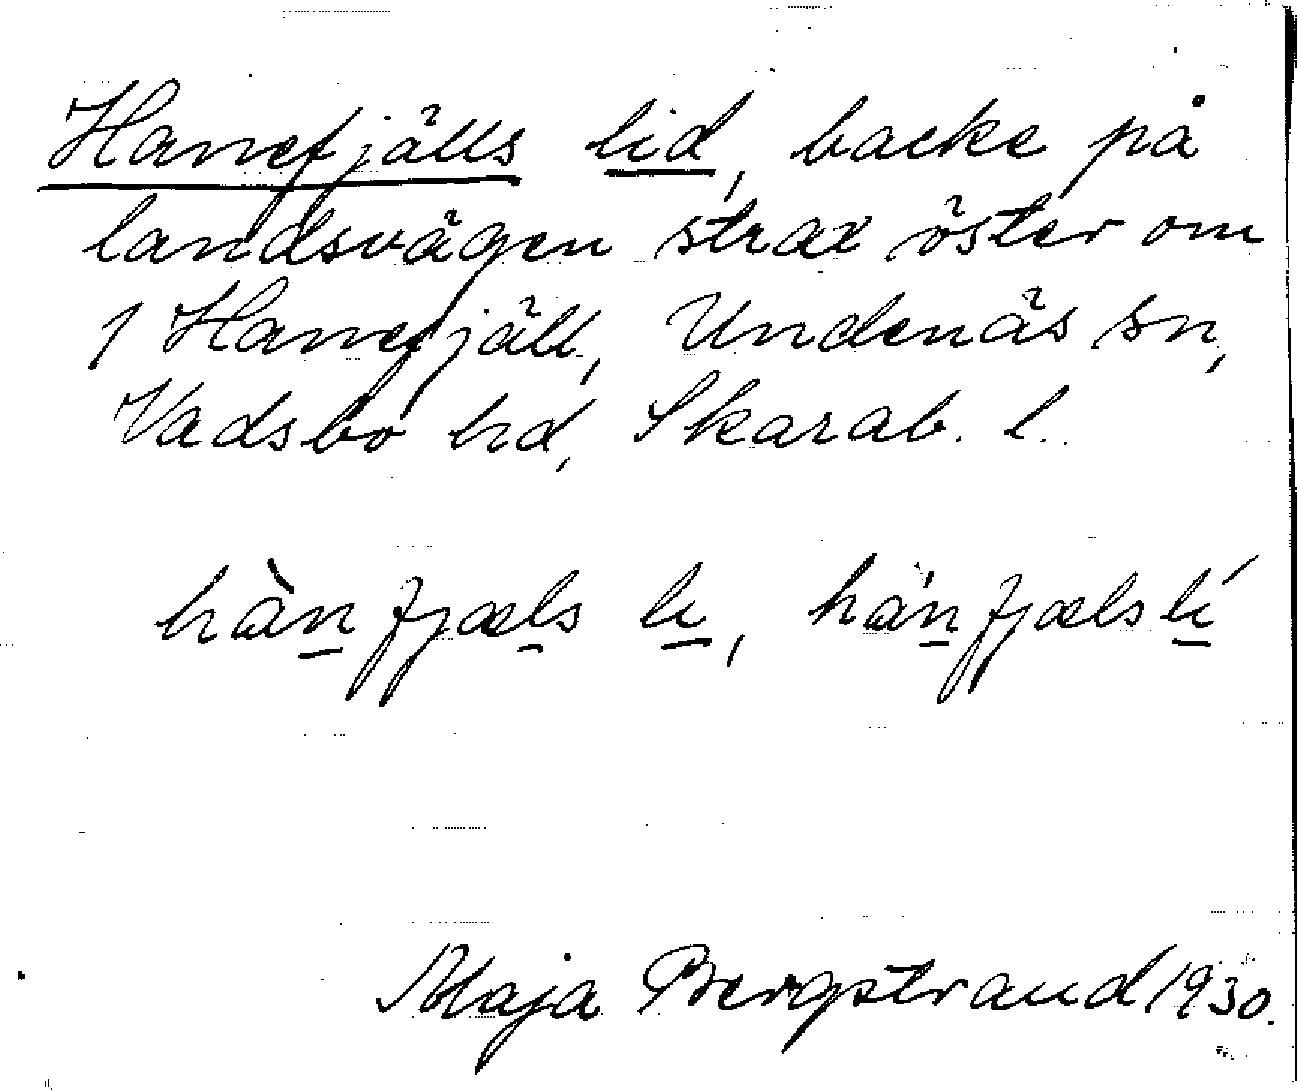 Hanefjälls lid, backe på
landsvägen strax öster om
1 Hanefjäll, Undenäs sn,
Vadsbo hd, Skarab. l.
hànfjæls li, hánfjælslí
Maja Bergstrand 1930.